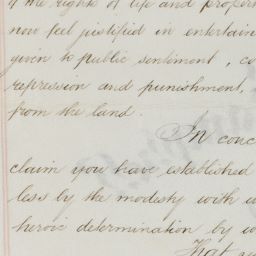 f the rights of life and proper
now feel justified in entertain
given to public sentiment, co
repression and punishment,
from the land.
In conc
claim you have established
less by the modesty with w
heroic determination by w
That